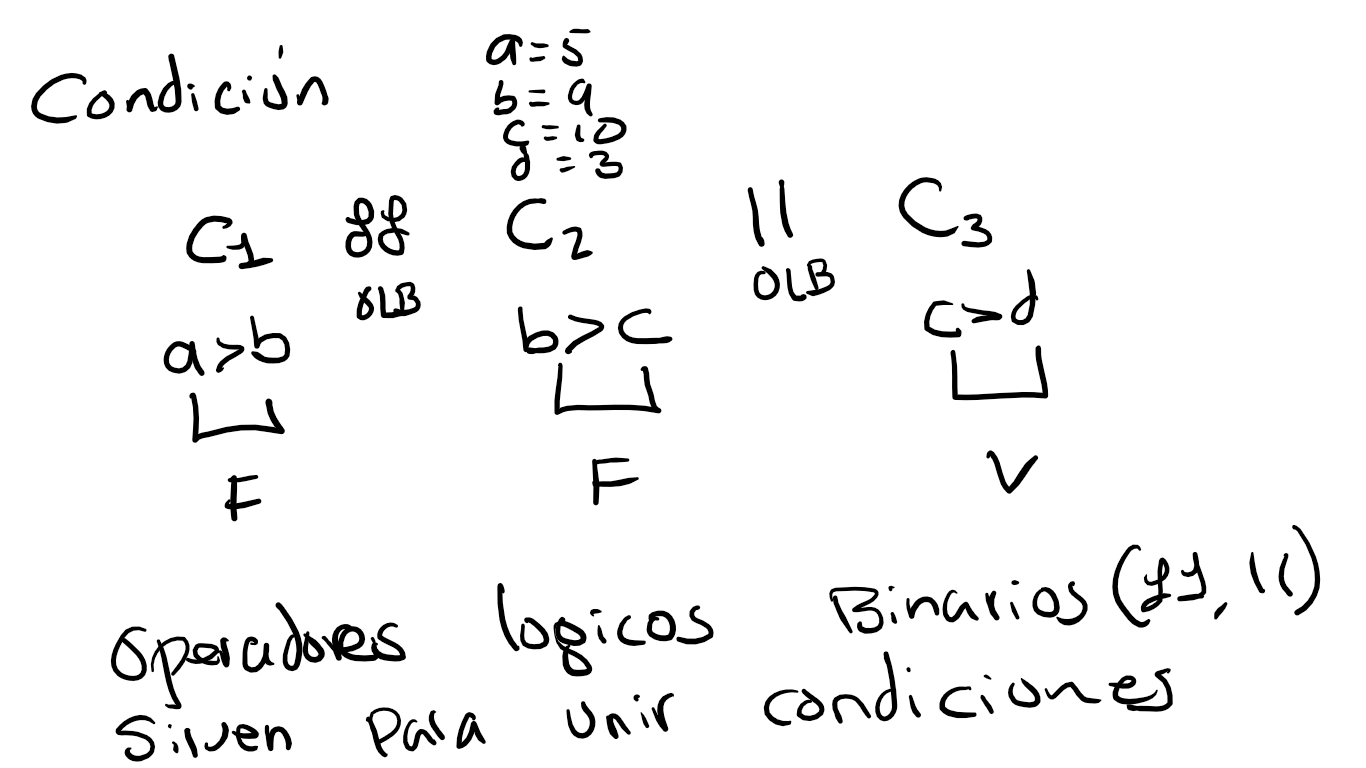 Condición
a=5
b=9
c=10
d=3
C1 && C2 || C3
OLB OLB
a>b b>c c>d
F F V
Operadores logicos Binarios (&&, ||)
Sirven para unir condiciones